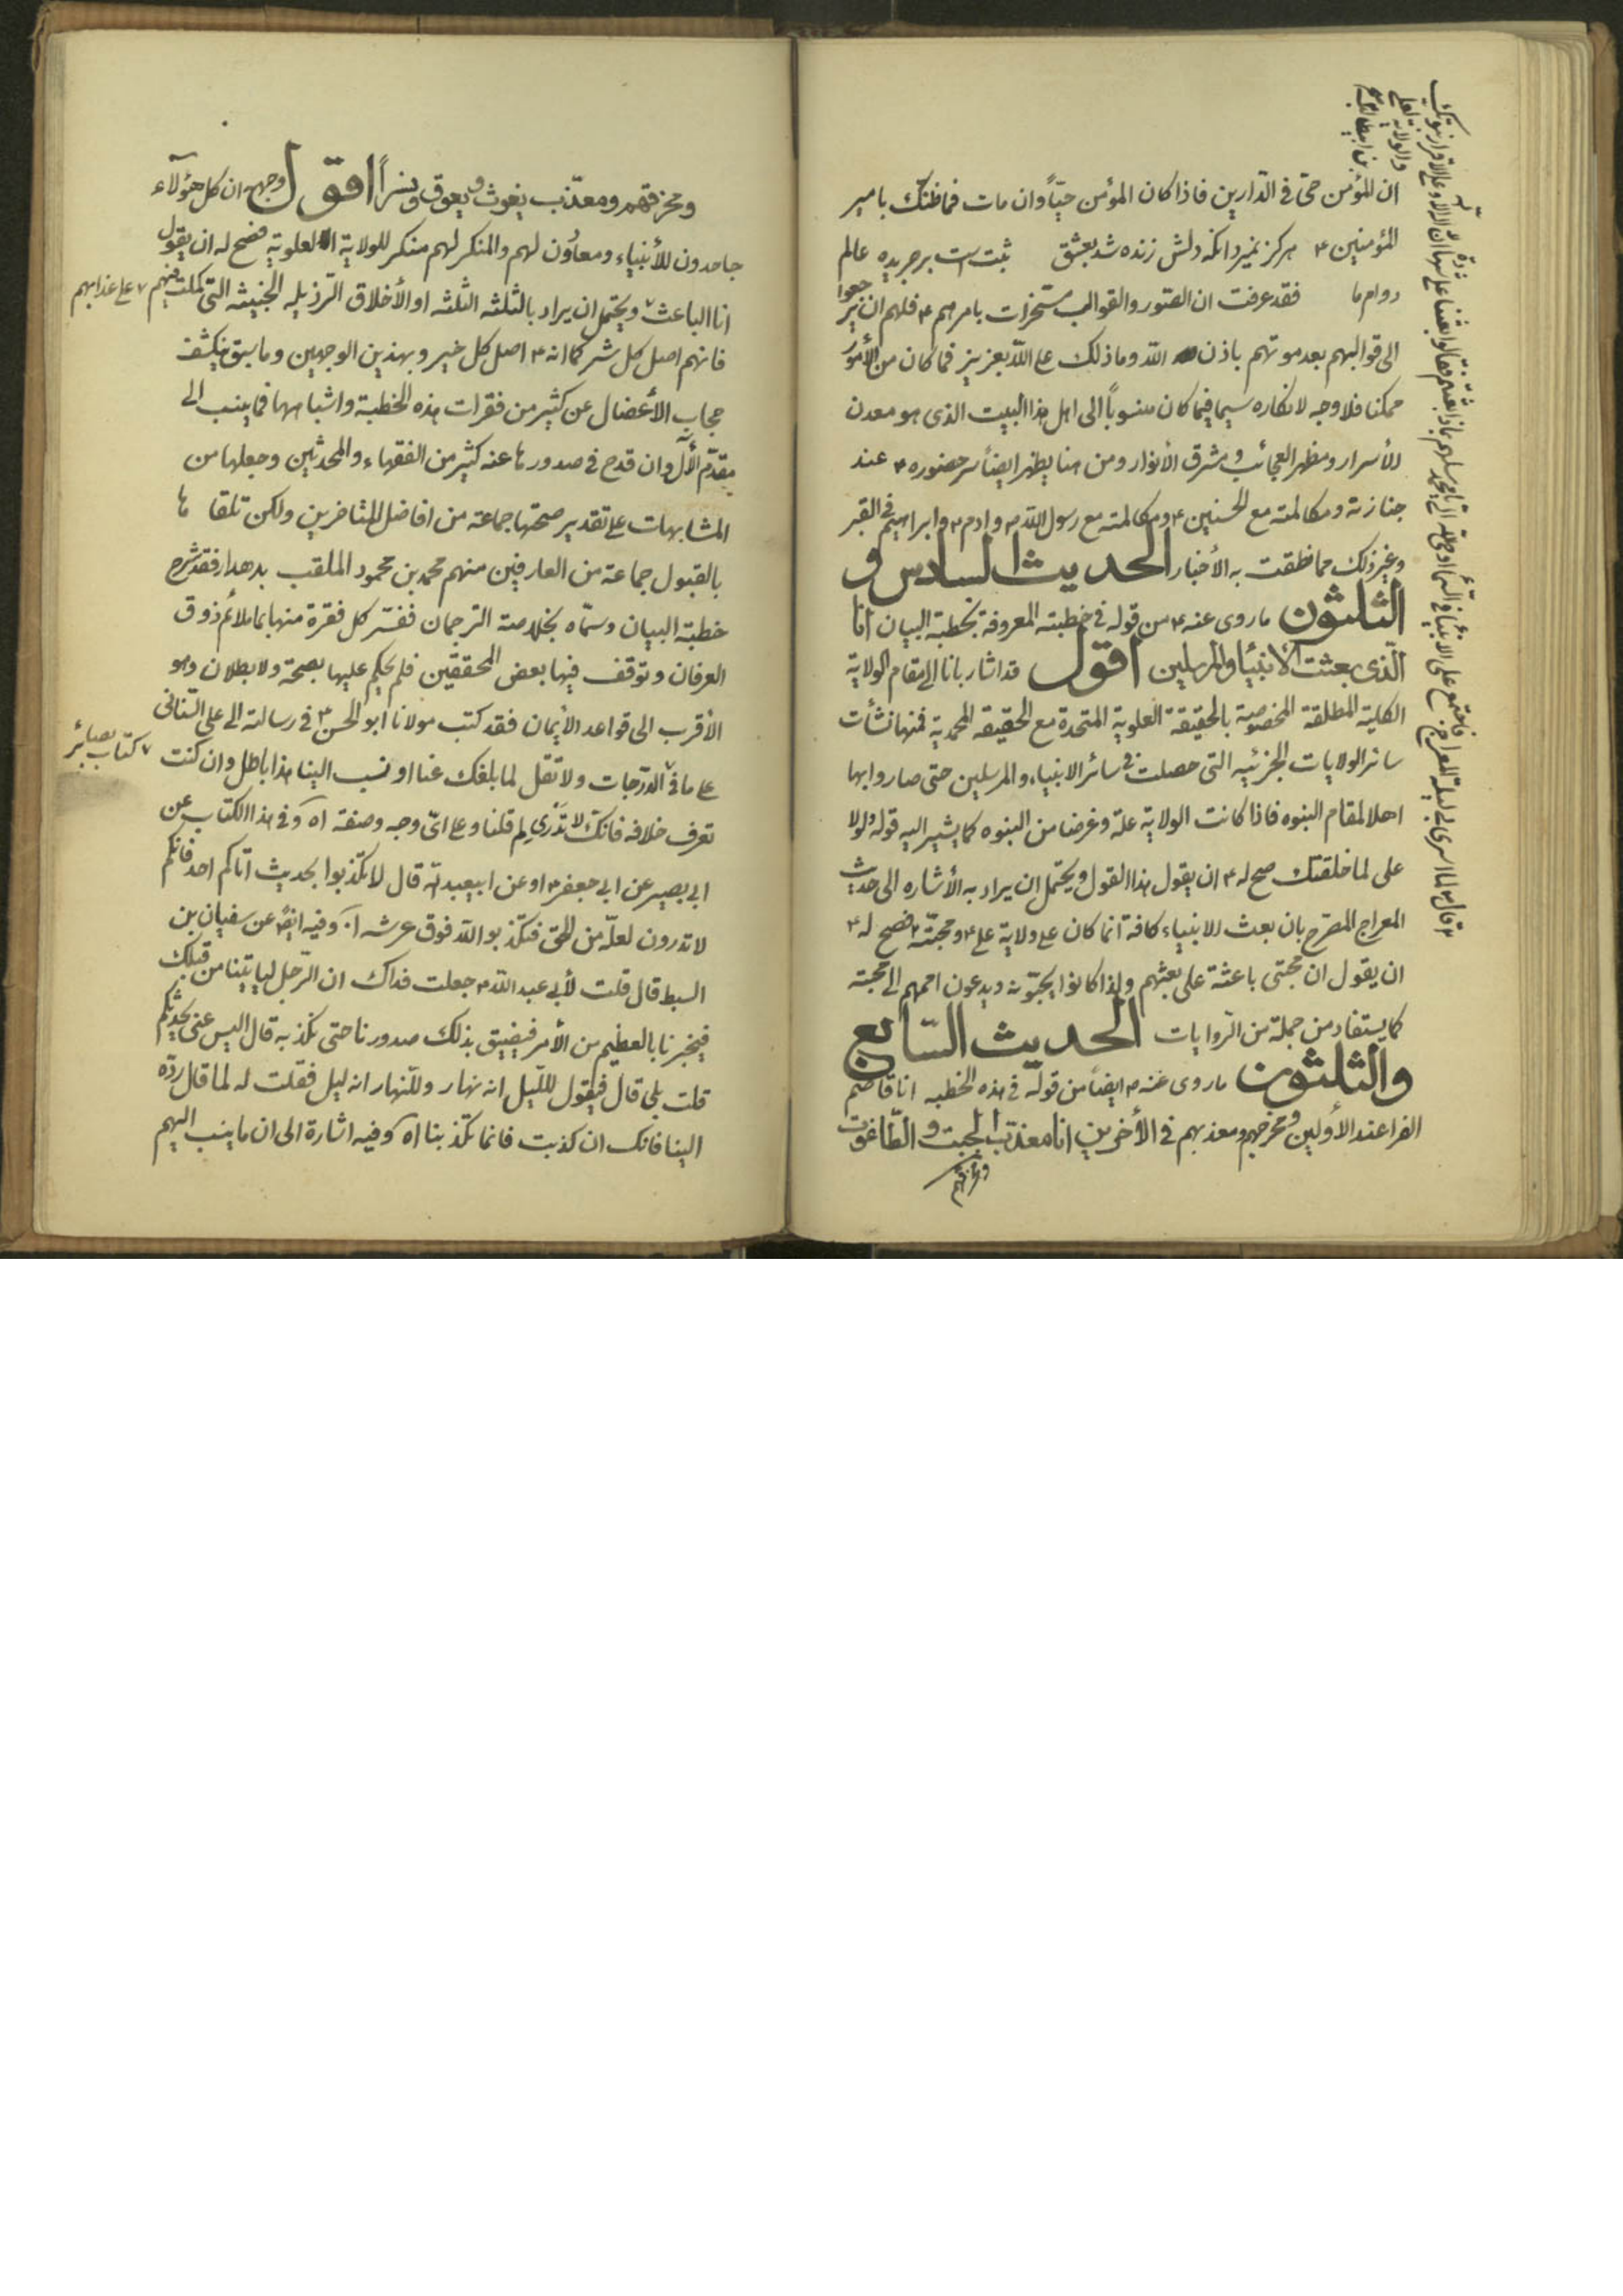 ان للمؤمن حق في الدارين فاذا كان المؤمن حيّاً وان مات فما ظنّك بامير
المؤمنين ؏ هركز نميرد انكه دلش زنده شد بعشق ثبت است بر جريده عالم
دوام ما فقد عرفت ان الصور والقوالب مسخرات بامرهم ؏ فلهم ان يرجعوا
الى قوالبهم بعد موتهم باذن الله وما ذلك على الله بعزيز فما كان من الأمور
ممكنا فلا وجه لانكاره سيما فيما كان منسوباً الى اهل هذا البيت الذى هو معدن
الأسرار ومظهر العجائب ومشرق الأنوار ومن هنا يظهر ايضاً سر حضوره ؏ عند
جنازته ومكالمته مع الحسنين ؏ ومكالمته مع رسول الله ص وادم ؏ وابراهيم في القبر
وغير ذلك مما نطقت به الأخبار الحديث السادس و
الثلثون ما روى عنه ؏ من قوله في خطبته المعروفة بخطبة البيان انا
الذى بعثت الأنبيا والمرسلين اقول قد اشار بانا الى مقام الولاية
الكلية المطلقة المخصوصة بالحقيقة العلوية المتحدة مع الحقيقة المحمدية فمنها نشأت
سائر الولايات الجزئيه التى حصلت في سائر الانبياء والمرسلين حتى صاروا بها
اهلا لمقام النبوه فاذا كانت الولاية علة وغرضا من النبوه كما يشير اليه قوله ولولا
على لما خلقتك صح له ؏ ان يقول هذا القول ويحتمل ان يراد به الأشاره الى حديث
المعراج المصرح بان بعث الانبياء كافة انما كان على ولاية على ؏ ومحبّته فصح له ؏
ان يقول ان محبتى باعثة على بعثهم ولذا كانوا يحبّونه ويدعون اممهم الى محبته
كما يستفاد من جملة من الروايات الحديث السّابع
والثلثون ما روى عنه ؏ ايضاً من قوله في هذه الخطبه انا قاصم
الفراعنه الأولين ومخرجهم ومعذبهم في الأخرين انا معذب الجبت والطاغوت
والولاية لعلى
بن ابيطالب
ومحرقهم ومعذّب يغوث ويعوق ونسراً اقول وجهه ان كل هؤلآء
جاحدون للأنبياء ومعاون لهم والمنكر لهم منكر للولاية العلوية فصح له ان يقول
انا الباعث ويحتمل ان يراد بالثلثه الثلثه او الأخلاق الرذيله الخبيثه التى كملت فيهم
على عذابهم
فانهم اصل كل شر كما انه ؏ اصل كل خير وبهذين الوجهين وما سبق ينكشف
حجاب الأعضال عن كثير من فقرات هذه الخطبة واشباهها فما ينسب الى
مقدّم الآل وان قدح في صدورها عنه كثير من الفقهاء والمحدثين وجعلها من
المشابهات على تقدير صحتها جماعة من افاضل المتأخرين ولكن تلقاها
بالقبول جماعة من العارفين منهم محمد بن محمود الملقب بدهدار فقد شرح
خطبة البيان وسمّاه بخلاصة الترجمان ففسّر كل فقرة منها بما يلائم ذوق
العرفان وتوقف فيها بعض المحققين فلم يحكم عليها بصحة ولا بطلان وهو
الأقرب الى قواعد الأيمان فقد كتب مولانا ابو الحسن ؏ في رسالته الى على السّنائى
على ما في الدّرجات ولا تقل لما بلغك عنا او نسب الينا هذا باطل وان كنت
كتاب بصائر
تعرف خلافه فانك لا تدرى لم قلنا وعلى اىّ وجه وصنفة اه وفي هذا الكتاب عن
ابي بصير عن ابي جعفر ؏ او عن ابيعبد الله قال لا تكذبوا بحديث اتاكم احد فانكم
لا تدرون لعلّه من الحق فتكذبوا الله فوق عرشه اه وفيه ايضاً عن سفيان بن
السبط قال قلت لأبي عبد الله ؏ جعلت فداك ان الرّجل ليأتينا من قبلك
فيخبرنا بالعظيم من الأمر فيضيق بذلك صدورنا حتى نكذبه قال اليس عنى يحدثكم
قلت بلى قال فيقول لليل انه نهار وللنهار انه ليل فقلت له لما قال ردّه
الينا فانك ان كذبت فانما تكذبنا اه وفيه اشارة الى ان ما ينسب اليهم